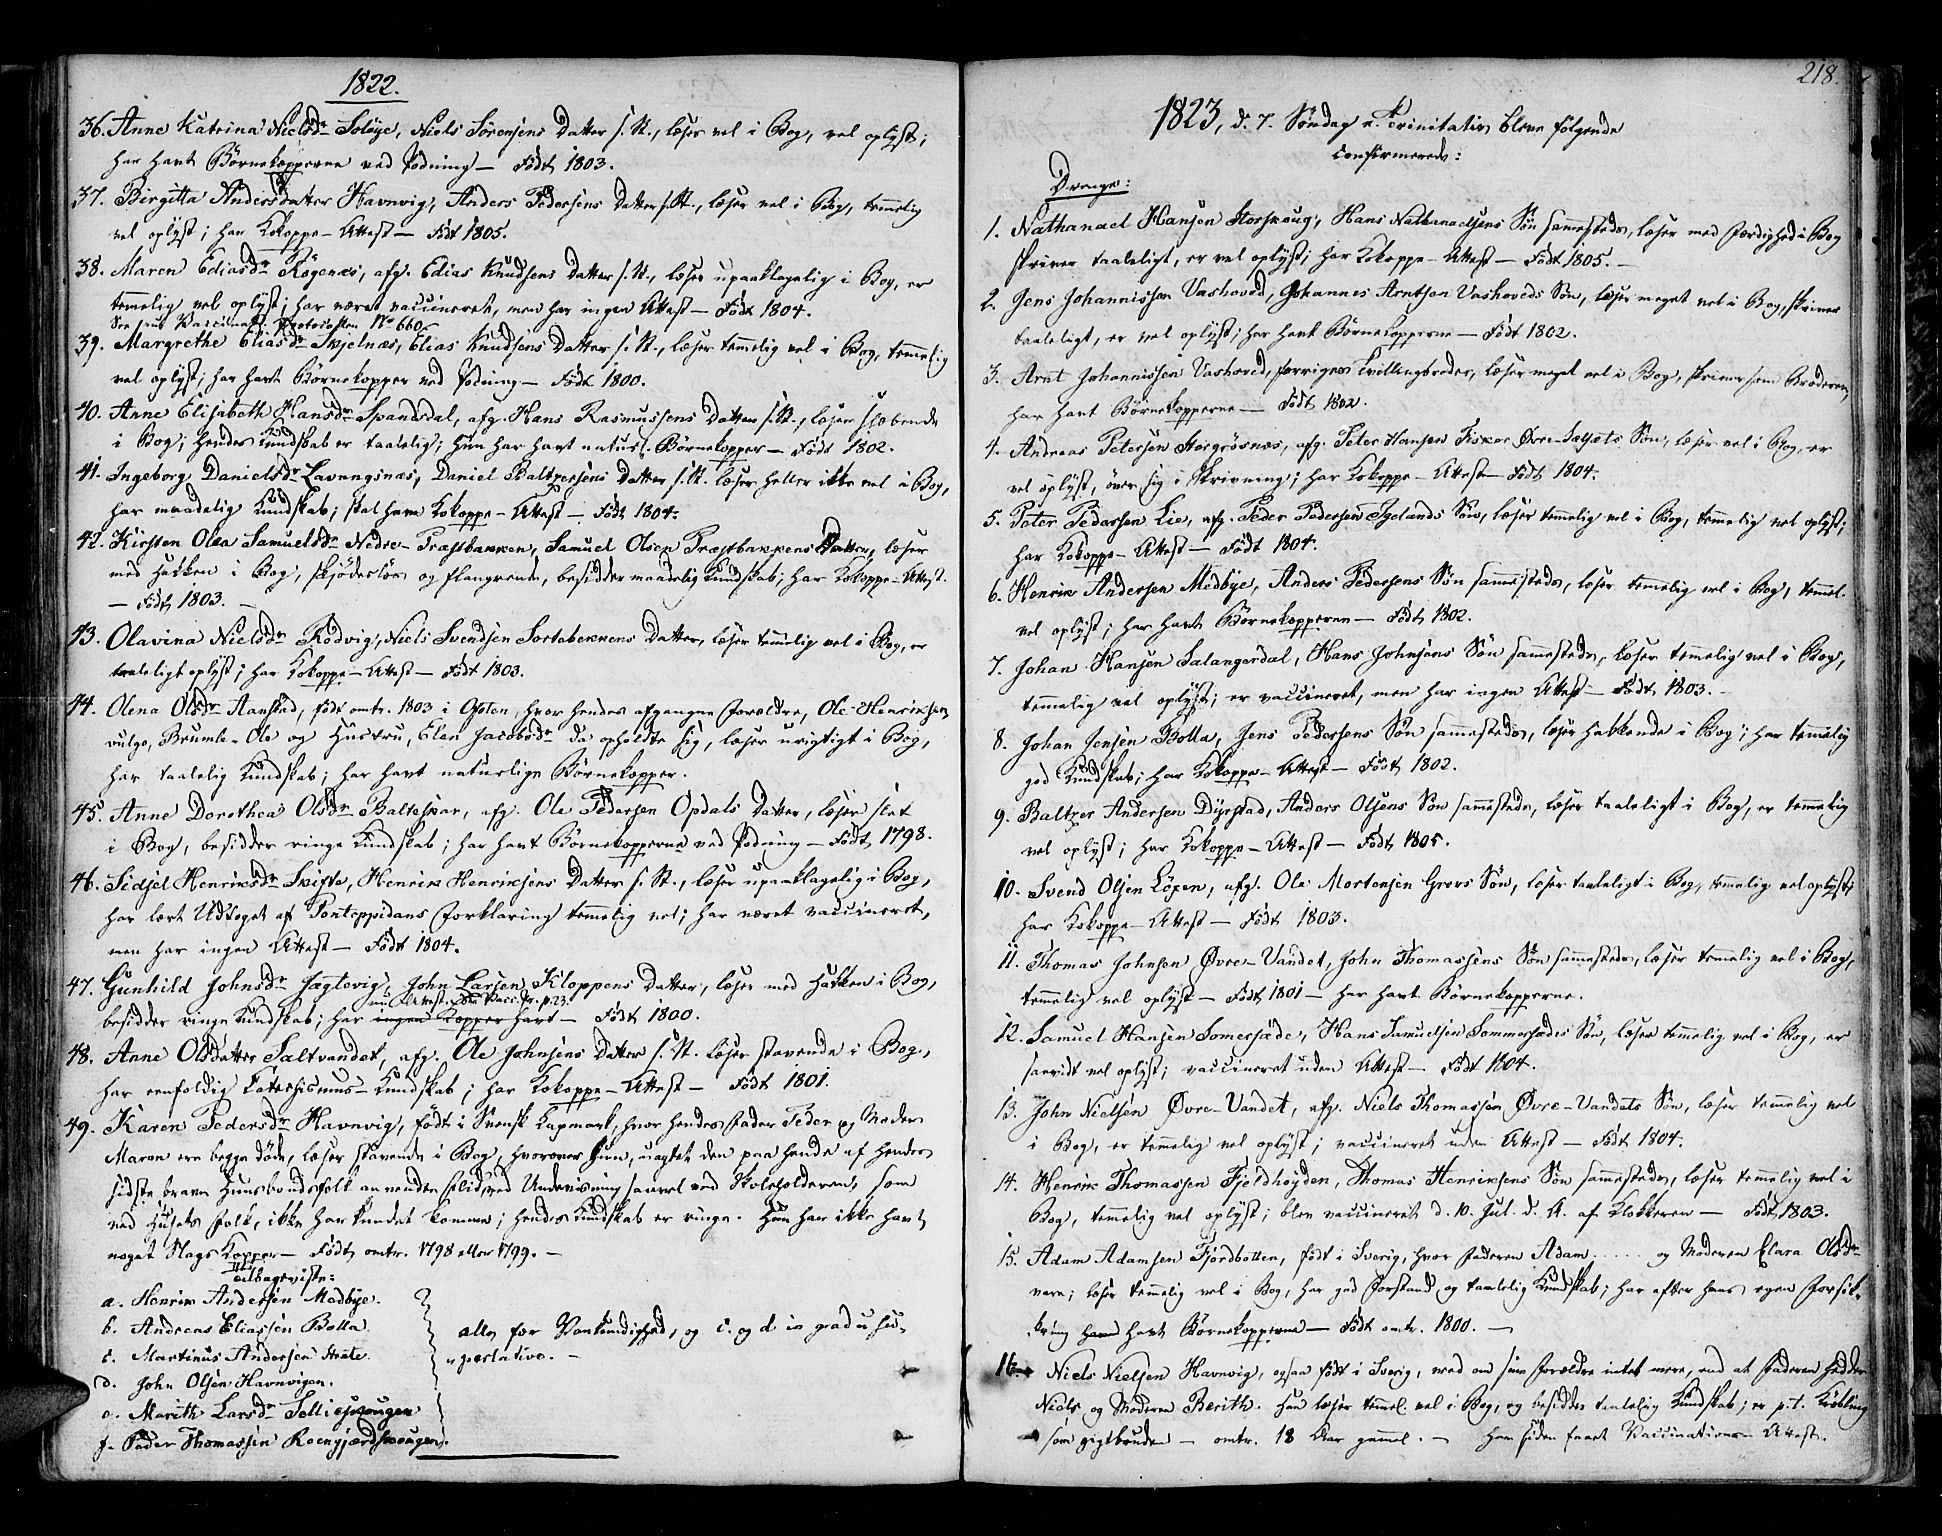 1822.
36. Anne Katrina Nielsdr Soløye, Niels Sørensens Datter s. St., læser vel i Bog, vel oplyst;
har havt Børnekopperne ved Podning — Født 1803.
37. Birgitta Andersdatter Havnvig, Anders Pedersens Datter s. St., læser vel i Bog, temmelig
vel oplyst; har Kokoppe-Attest — Født 1805.
38. Maren Ediasdr Røgenæs, afg. Edias Knudsens Datter s. St., læser upaaklagelig i Bog, er
temelig vel oplyst; har været vaccineret, men har ingen Attest — Født 1804.
No 660.
39. Margrethe Eliasdr Skjelnæs, Elias Knudsens Datter s. St., læser temelig vel i Bog, temelig
vel oplyst; har havt Børnekopper ved Podning — Født 1800.
40. Anne Elisabeth Hansdr Spandsdal, afg. Hans Rasmussens Datter s. St., læser slæbende
i Bog; hendes Kundskab er taalelig; hun har havt naturl. Børnekopper — Født 1802.
41. Ingeborg Danielsdr Lavungsnæs, Daniel Baltzersens Datter s. St. læser heller ikke vel i Bog,
har maadelig Kundskab; skal have Kokoppe-Attest — Født 1804.
42. Kirsten Olea Samuelsdr Nedre-Præstbakken, Samuel Olsen Præstbakkens Datter, læser
med Hakken i Bog, skjødesløs og slangrende, besidder maadelig Kundskab; har Kokoppe-Attest.
— Født 1803. —
43. Olavina Nielsdr Rødvig, Niels Svendsen Sortebekkens Datter, læser temelig vel i Bog, er
taaleligt oplyst; har Kokoppe-Attest — Født 1803.
44. Olena Olsdr Aanstad, født omtr. 1803 i Ofoten, hvor hendes afgangne Forældre, Ole Henriksen,
vulgo, Brumle-Ole og Hustru, Elen Jacobsdr da opholdte sig, læser urigtigt i Bog,
har taalelig Kundskab; har havt naturlige Børnekopper.
45. Anne Dorothea Olsdr Balteskar, afg. Ole Pedersen Opdals Datter, læser slet
i Bog, besidder ringe Kundskab; har havt Børnekopperne ved Podning — Født 1798.
46. Sidsel Henriksdr Skifte, Henrik Henriksens Datter s. St., læser upaaklagelig i Bog,
har lært Udtoget af Pontoppidans Forklaring temelig vel; har været vaccineret,
men har ingen Attest — Født 1804.
47. Gunhild Johnsdr Jægtevig, John Larsen Kloppens Datter, læser med Hakken i Bog,
nu Attest. See Vacc. Pr. p. 23.
besidder ringe Kundskab; har ingen Kopper havt — Født 1800.
48. Anne Olsdatter Saltvandet, afg. Ole Johnsens Datter s. St. læser stavende i Bog,
har eenfoldig Catechismus-Kundskab; har Kokoppe-Attest — Født 1801.
49. Karen Pedersdr Havnvig, født i Svensk Lapmark, hvor hendes Fader Peder og Moder
Maren ere begge døde, læser stavende i Bog, hvorover hun, uagtet den paa hende af hendes
sidste brave Huusbondsfolk anvendte Flid ved Underviisning saavel ved Skoleholderen, som
ved Husets Folk, ikke har kundet komme; hendes Kundskab er ringe. Hun har ikke havt
noget Slags Kopper — Født omtr. 1798 eller 1799. —
Tilbageviste:
a. Henrik Andersen Medbye.
b. Andreas Eliassen Bolla
c. Martinus Andersen Strate.
d. John Olsen Havnvigen.
e. Marith Larsdr Sellieskougen
f. Peder Thomassen Roengjærdskougen.
alle for Vankundighed, og c. og d in gradu su-
perlativo. —
218.
1823, d. 7. Søndag e. Trinitatis bleve følgende
confirmerede:
Drenge:
1. Nathanael Hansen Storskoug, Hans Nathanaelsens Søn sammesteds, læser med Færdighed i Bog
skriver taaleligt, er vel oplyst; har Kokoppe-Attest — Født 1805. —
2. Jens Johannissen Vashoved, Johannes Arntsen Vashoveds Søn, læser meget vel i Bog, skriver
taaleligt, er vel oplyst; har havt Børnekopperne — Født 1802.
3. Arnt Johannissen Vashoved, forriges Tvillingbroder, læser meget vel i Bog, skriver som Broderen,
har havt Børnekopperne — Født 1802.
4. Andreas Petersen Storgrøsnæs, afg. Peter Hansen Fisker Øvre-Salysts Søn, læser vel i Bog, er
vel oplyst, øver sig i Skrivning; har Kokoppe-Attest — Født 1804.
5. Peter Pedersen Lie, afg. Peder Pedersen Tyelands Søn, læser temelig vel i Bog, temelig vel oplyst;
har Kokoppe-Attest — Født 1804.
6. Henrik Andersen Medbye, Anders Pedersens Søn sammesteds, læser temelig vel i Bog, temel.
vel oplyst; har havt Børnekopperne — Født 1802.
7. Johan Hansen Salangsdal, Hans Johnsens Søn sammesteds, læser temelig vel i Bog,
temmelig vel oplyst; er vaccineret, men har ingen Attest — Født 1803. —
8. Johan Jensen Bolla, Jens Pedersens Søn sammesteds, læser hakkende i Bog; har temelig
god Kundskab; har Kokoppe-Attest — Født 1802.
9. Baltzer Andersen Dyrstad, Anders Olsens Søn sammesteds, læser taaleligt i Bog, er temelig
vel oplyst; har Kokoppe-Attest — Født 1805.
10. Svend Olsen Løxen, afg. Ole Mortensen Grovs Søn, læser taaleligt i Bog, temelig vel oplyst;
har Kokoppe-Attest — Født 1803.
11. Thomas Johnsen Øvre-Vandet, John Thomassens Søn sammesteds, læser temelig vel i Bog,
temelig vel oplyst — Født 1801 — har havt Børnekopperne.
12. Samuel Hansen Somersæde, Hans Samuelsen Sommersædes Søn, læser temelig vel i Bog, er
saavidt vel oplyst; vaccineret uden Attest — Født 1804.
13. John Nielsen Øvre-Vandet, afg. Niels Thomassen Øvre-Vandets Søn, læser temelig vel
i Bog, er temelig vel oplyst; vaccineret uden Attest — Født 1804.
14. Henrik Thomassen Fjeldhøyden, Thomas Henriksens Søn sammesteds, læser temelig vel i
Bog, temelig vel oplyst; blev vaccineret d. 10. Jul. d. A. af Klokkeren — Født 1803.
15. Adam Adamsen Fjordbotten, født i Sverig, hvor Faderen Adam ..... og Moderen Clara Olsdr
vare; læser temelig vel i Bog, har god Forstand og taalelig Kundskab; har efter hans egen Forsik-
kring havt Børnekopperne — Født omtr. 1800. —
16. Niels Nielsen Havnvig, ogsaa født i Sverig, veed om sine Forældre intet mere, end at Faderen hedder
Niels og Moderen Berith. Han læser temel. vel i Bog, og besidder taalelig Kundskab; er p. t. Krøbling
som gigtbruden — omtr. 18 Aar gammel. — Har siden faaet Vaccinations-Attest.